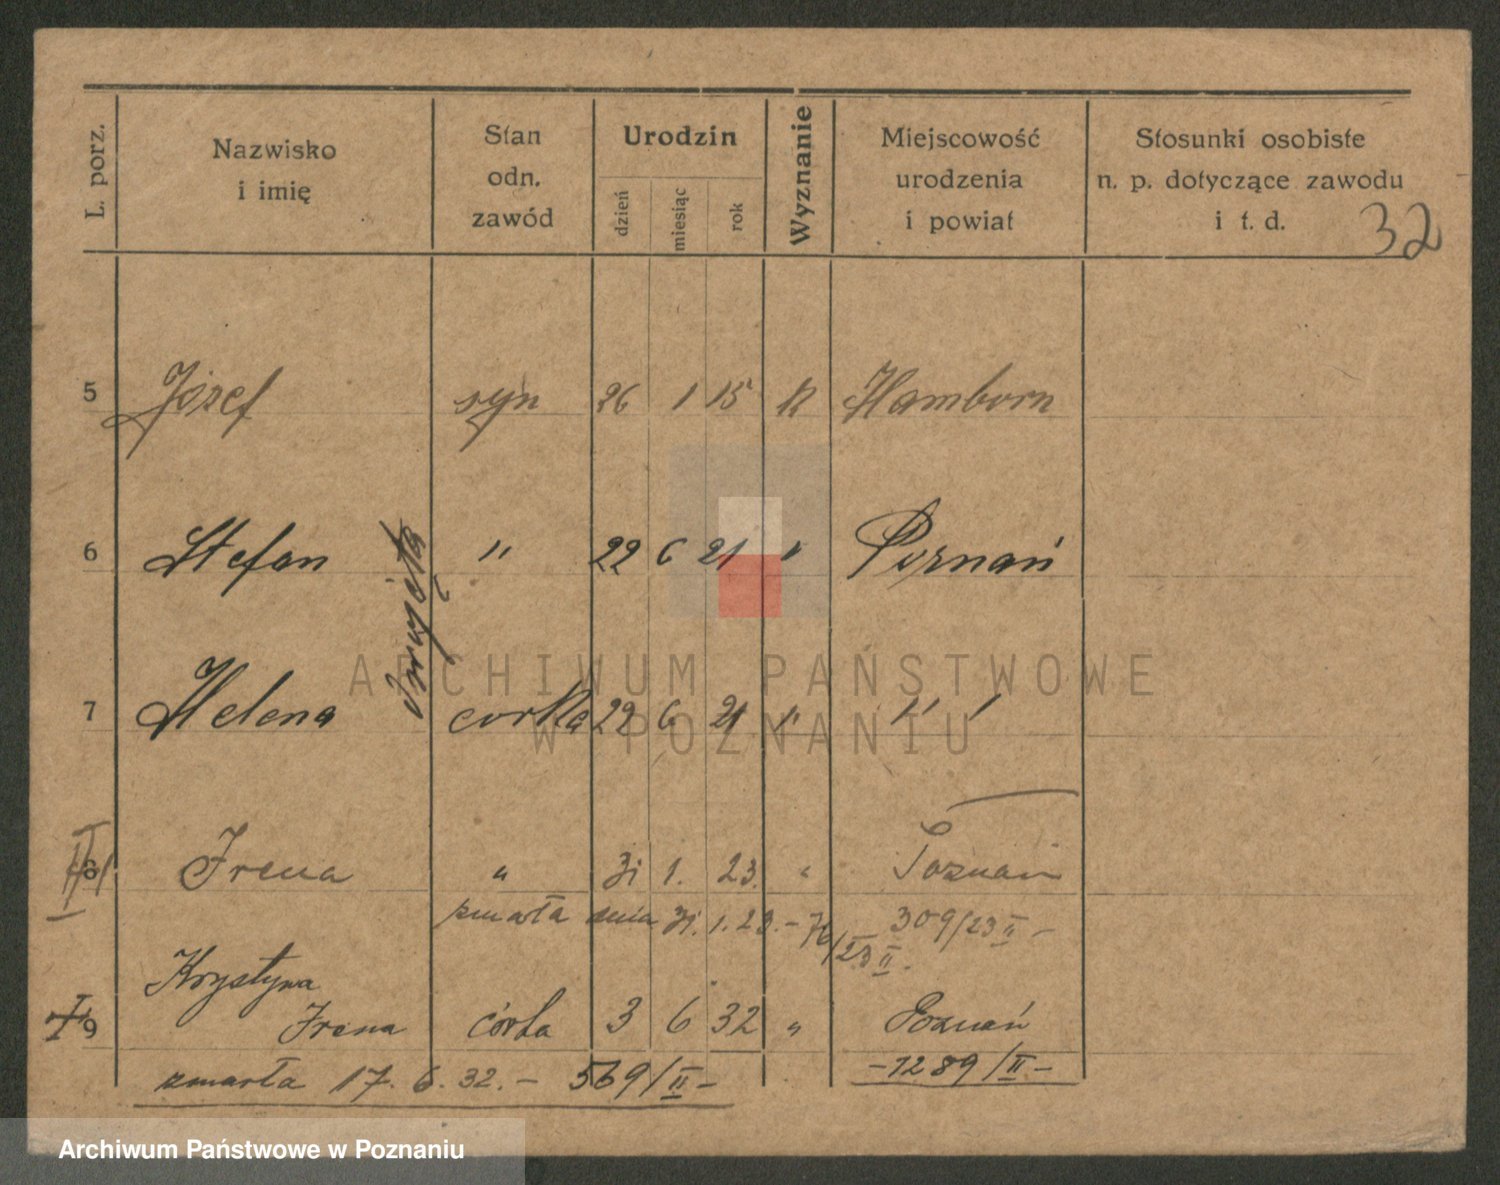 L. porz. Nazwisko i imię Stan odn. zawód Urodzin dzień miesiąc rok Wyznanie Miejscowość urodzenia i powiat Stosunki osobiste n. p. dotyczące zawodu i t. d.
32
5 Józef syn 26 1 15 k Hamborn
6 Stefan " 22 6 21 " Poznań
7 Helena corka 22 6 21 " " "
ARCHIWUM PAŃSTWOWE
W POZNANIU
8 Irena " 31 1. 23. " Poznań
zmarła dnia 31. 1. 23. - 76/23 II. 309/23 II -
Krystyna
9 Irena córka 3 6 32 " Poznań
zmarła 17. 6. 32. - 569/II - - 1289/II -
Archiwum Państwowe w Poznaniu